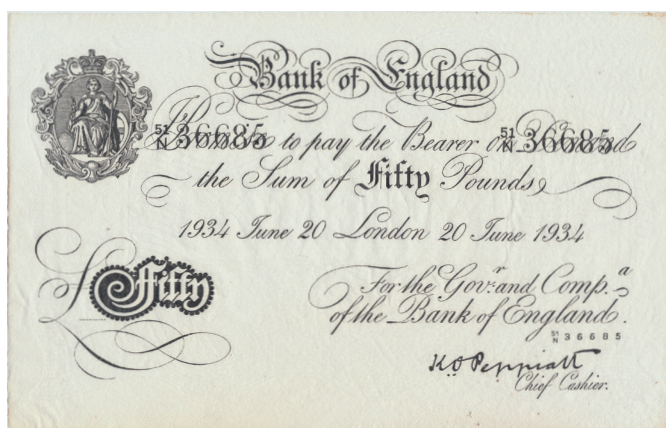 Bank of England
51/N 36685 51/N 36685
I Promise to pay the Bearer on Demand
the Sum of Fifty Pounds
1934 June 20 London 20 June 1934
£Fifty
For the Govr. and Compa.
of the Bank of England.
51/N 36685
K.O. Peppiatt
Chief Cashier.